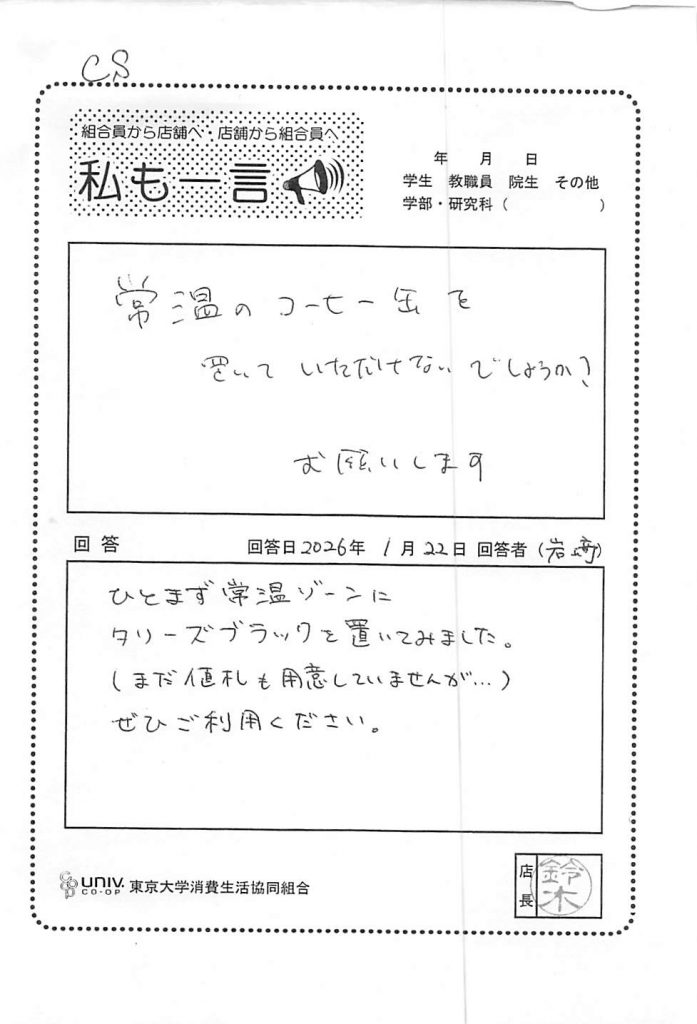 CS
組合員から店舗へ・店舗から組合員へ
私も一言
年 月 日
学生 教職員 院生 その他
学部・研究科( )
常温のコーヒー缶を
置いていただけないでしょうか?
お願いします
回答 回答日2026年 1月22日 回答者(岩崎)
ひとまず常温ゾーンに
タリーズブラックを置いてみました。
(まだ値札も用意していませんが…)
ぜひご利用ください。
coop UNIV. CO-OP 東京大学消費生活協同組合
店長 鈴木